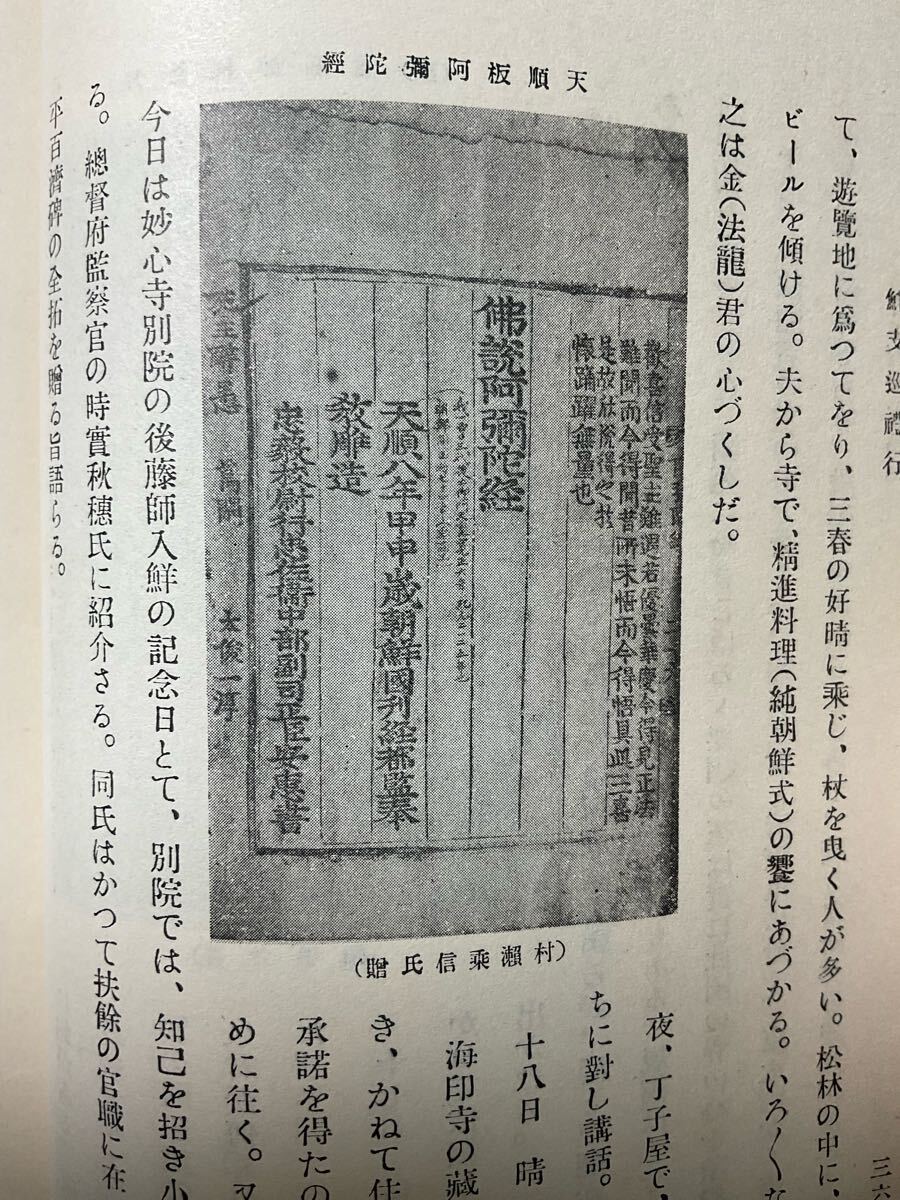 鮮支巡禮行
三六
て、遊覽地に爲つてをり、三春の好晴に乘じ、杖を曳く人が多い。松林の中に、
ビールを傾ける。夫から寺で、精進料理(純朝鮮式)の饗にあづかる。いろ〱な
之は金(法龍)君の心づくしだ。
天順板阿彌陀經
歡喜信受聖主難遇若優曇華慶今得見正法
難聞而今得聞昔所未悟而今得悟具此三喜
是故欣悅得之於
懷踊躍無量也
佛說阿彌陀経
天順八年甲申歲朝鮮國刊経都監奉
敎雕造
忠毅校尉行忠佐衛中部副司正臣安惠書
(村瀨乘信氏贈)
夜、丁子屋で、
ちに對し講話。
十八日 晴
海印寺の藏
き、かねて仕
承諾を得たの
めに往く。又
今日は妙心寺別院の後藤師入鮮の記念日とて、別院では、知己を招き小
る。總督府監察官の時實秋穗氏に紹介さる。同氏はかつて扶餘の官職に在
平百濟碑の全拓を贈る旨語らる。